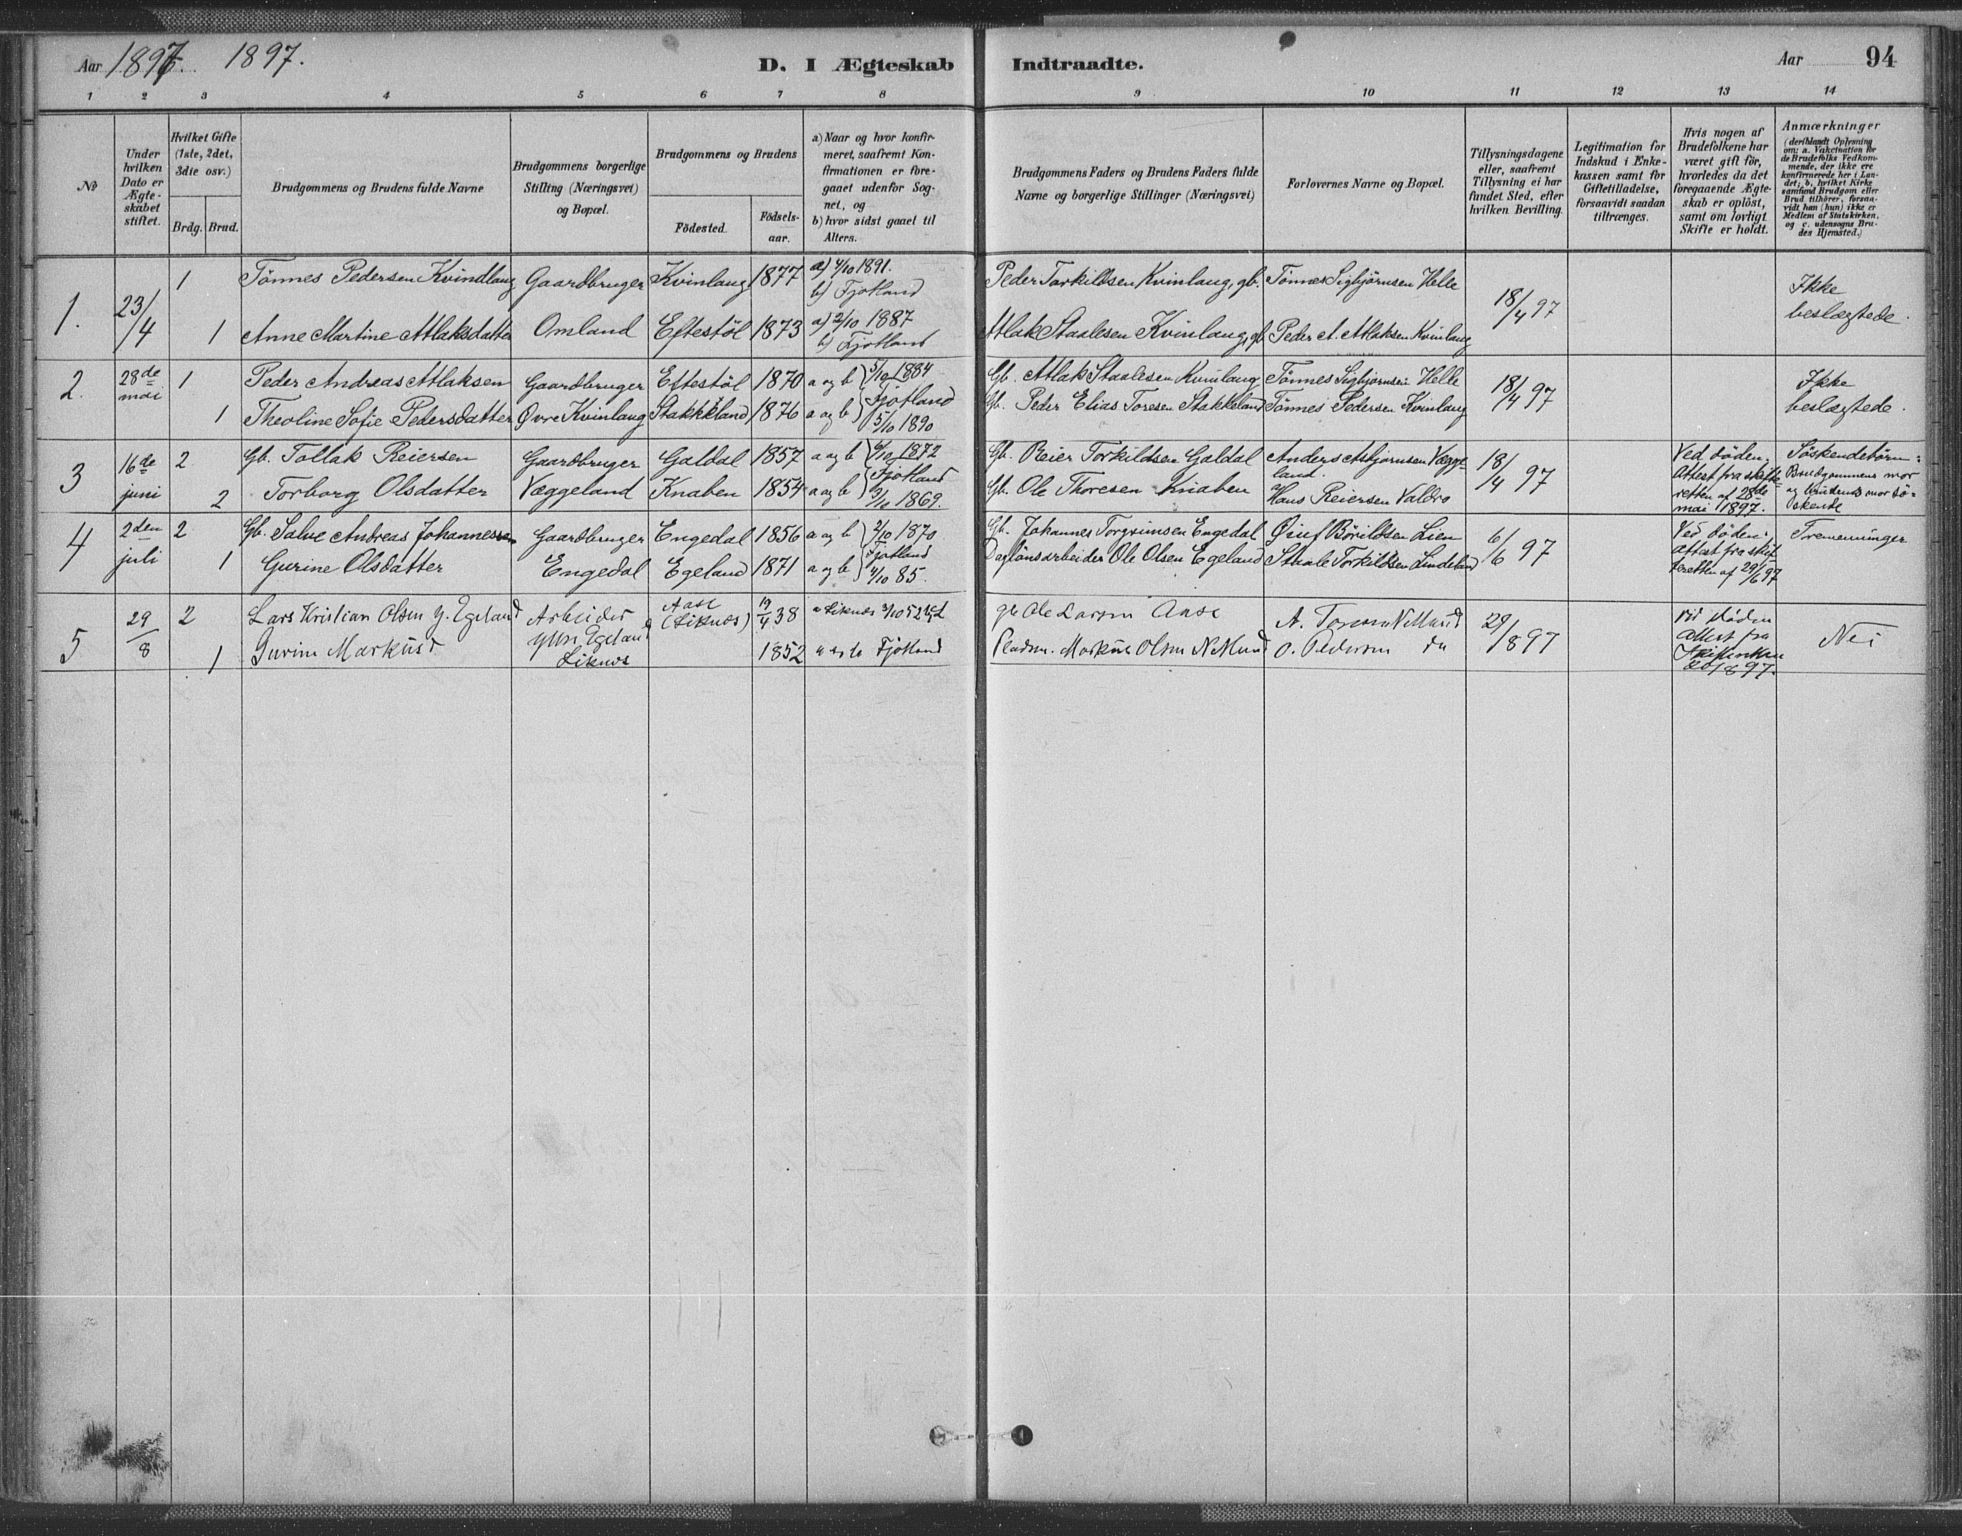 Aar 1897. 1897.
D. I Ægteskab Indtraadte.
Aar 94
1 2 3 4 5 6 7 8 9 10 11 12 13 14
No
Under hvilken Dato er Ægteskabet stiftet.
Hvilket Gifte (1ste, 2det, 3die osv.)
Brdg. Brud.
Brudgommens og Brudens fulde Navne
Brudgommens borgerlige Stilling (Næringsvei) og Bopæl.
Brudgommens og Brudens
Födested.
Födselsaar.
a) Naar og hvor konfirmeret, saafremt Konfirmationen er foregaaet udenfor Sognet, og
b) hvor sidst gaaet til Alters.
Brudgommens Faders og Brudens Faders fulde Navne og borgerlige Stillinger (Næringsvei)
Forlovernes Navne og Bopæl.
Tillysningsdagene eller, saafremt Tillysning ei har fundet Sted, efter hvilken Bevilling.
Legitimation for Indskud i Enkekassen samt for Giftetilladelse, forsaavidt saadan tiltrænges.
Hvis nogen af Brudefolkene har været gift för, hvorledes da det foregaaende Ægteskab er oplöst, samt om lovligt Skifte er holdt.
Anmærkninger (deriblandt Oplysning om: a. Vakcination for de Brudefolks Vedkommende, der ikke ere konfirmerede her i Landet; b. hvilket Kirkesamfund Brudgom eller Brud tilhörer, forsaavidt han (hun) ikke er Medlem af Statskirken, og c. udensogns Brudes Hjemsted.)
1. 23/4 1 Tönnes Pedersen Kvindlaug Gaardbruger Kvinlaug 1877 a) 4/10 1891. b) Fjotland Peder Torkildsen Kvinlaug, gb. Tönnes Sigbjörnsen Helle 18/4 97 Ikke beslægtede.
1 Anne Martine Atlaksdatter Omland Eftestöl 1873 a) 2/10 1887 b) Fjotland Atlak Staalesen Kvinlaug, gb Peder A. Atlaksen Kvinlaug
2. 28de mai 1 Peder Andreas Atlaksen Gaardbruger Eftestöl 1870 a og b 5/10 1884 Fjotland Gb. Atlak Staalesen Kvinlaug Tönnes Sigbjörnsen Helle 18/4 97 Ikke beslægtede.
1 Theoline Sofie Pedersdatter Øvre Kvinlaug Stakkeland 1876 a og b 5/10 1890 Gb. Peder Elias Toresen Stakkeland Tönnes Pedersen Kvinlaug
3 16de juni 2 Gb. Tollak Reiersen Gaardbruger Galdal 1857 a og b 6/10 1872 Fjotland Gb. Reier Torkildsen Galdal Anders Asbjörnsen Væggeland. 18/4 97 Ved döden; Attest fra skifteretten af 28de mai 1897. Söskendebörn: Brudgommens mor og brudens mor söskende
2 Torborg Olsdatter Væggeland Knaben 1854 a og b 3/10 1869. Gb. Ole Thoresen Knaben Hans Reiersen Valdro
4 2den juli 2 Gb. Salve Andreas Johannessen Gaardbruger Engedal 1856 a og b 2/10 1870 Fjotland Gb. Johannes Torgrimsen Engedal Lien 6/6 97 Ved döden: attest fra skifteretten af 29/6 97 Tremenninger
1 Gurine Olsdatter Engedal Egeland 1871 a og b 4/10 85. Daglönsarbeider Ole Olsen Egeland Staale Torkildsen Lindeland
5 29/8 2 Lars Kristian Olsen y. Egeland Arbeider Egeland Liknes Aase (Liknes) 19/4 38 a Liknes gb Ole Larsen Aase A. 29/8 97 Ved döden Attest fra Nei
1 Gurine Markusd 1852 Fjotland Markus Olsen O. Pedersen do